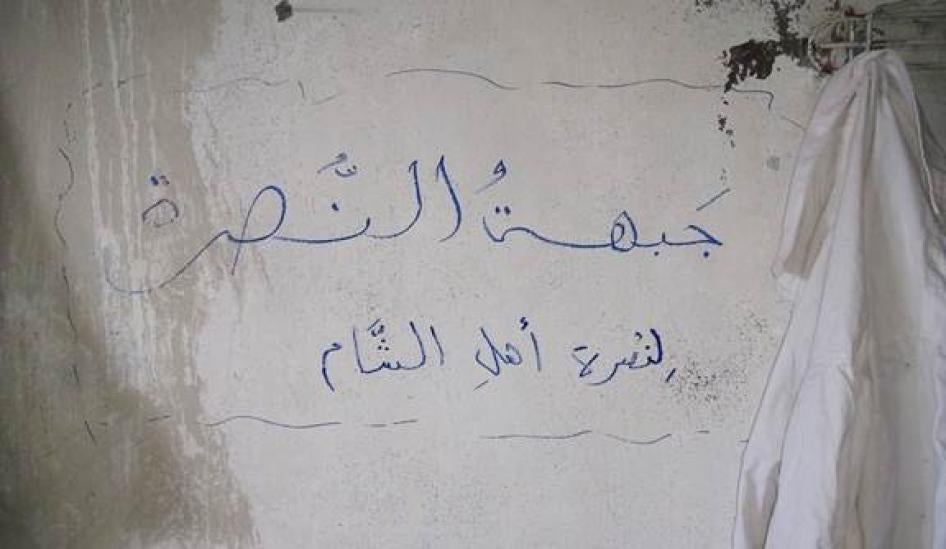 جَبهةُ النُّصرة
لِنُصرة أهلِ الشَّام